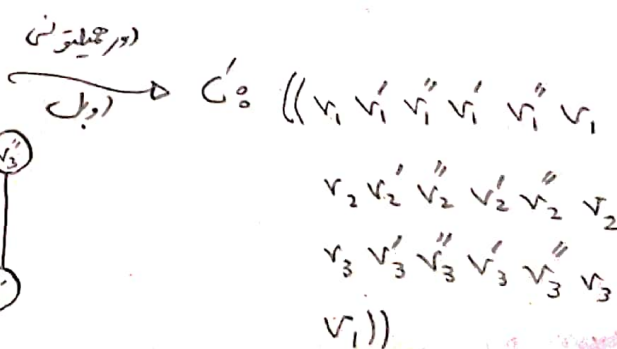 دور همیلتونی
دوبل
C': ((v₁ v₁' v₁'' v₁' v₁'' v₁
v₃''
v₂ v₂' v₂'' v₂' v₂'' v₂
v₃ v₃' v₃'' v₃' v₃'' v₃
v₁))